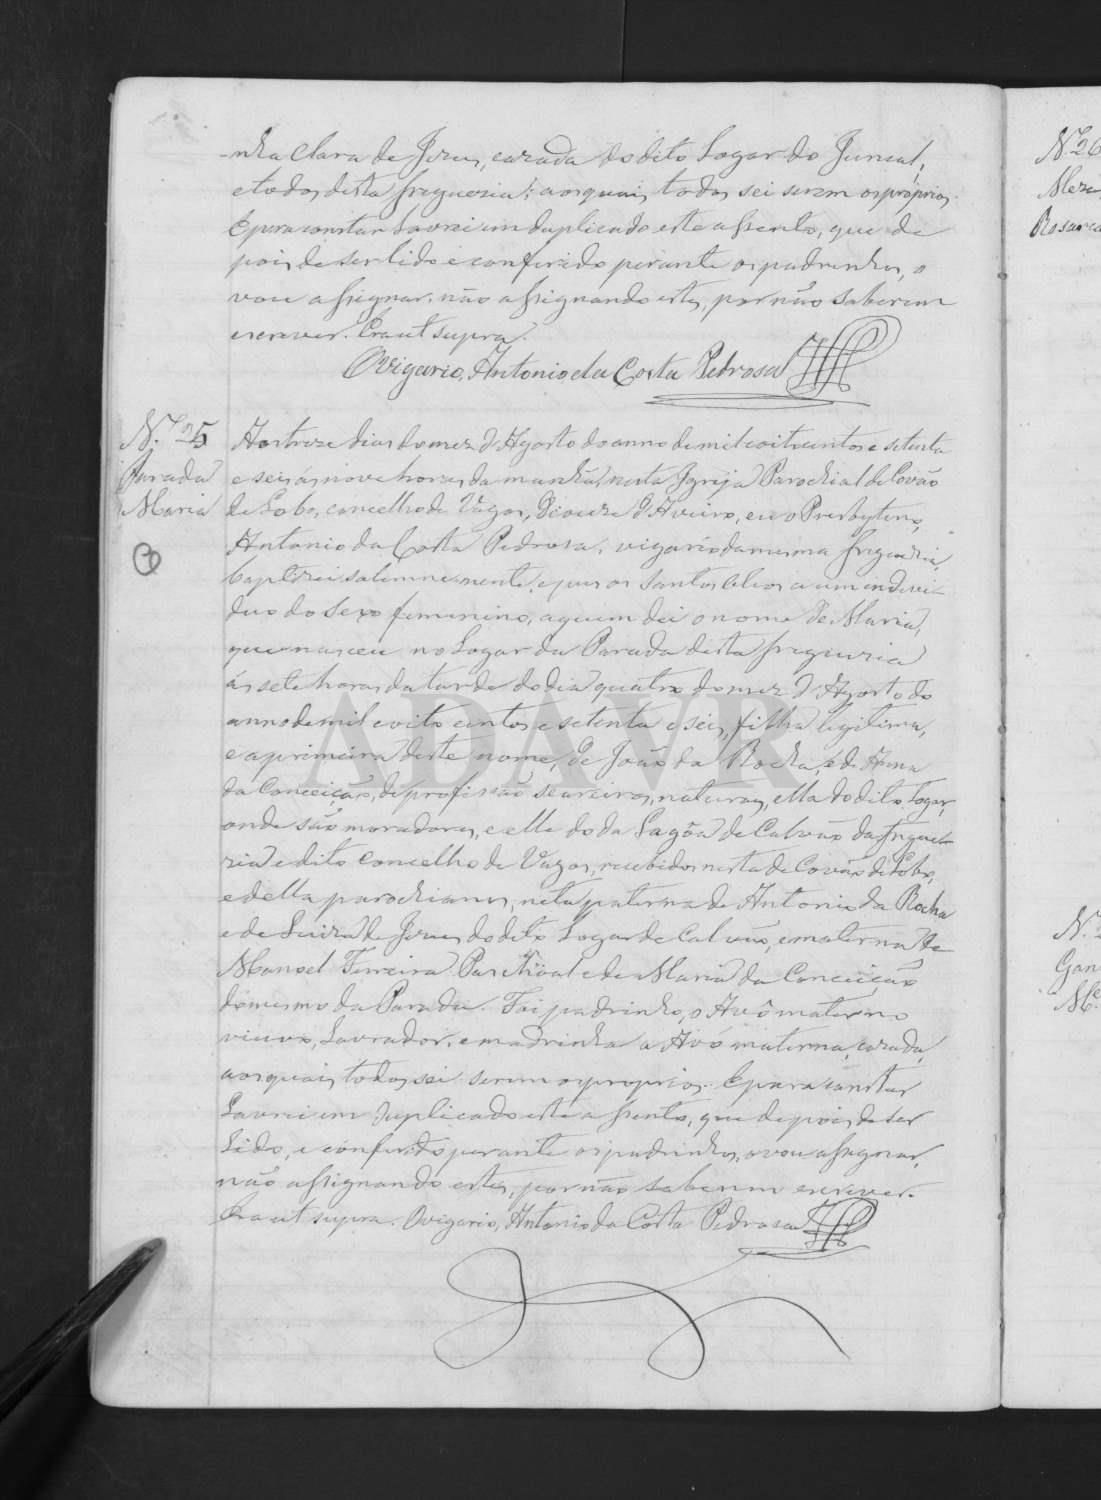 -nha Clara de Jesus, casada do dito Logar do Juncal,
e todos desta freguezia; aos quaes todos sei serem os proprios.
E para constar lavrei em duplicado este assento, que de
pois de ser lido e conferido perante os padrinhos, o
vou assignar, não assignando estes, por não saberem
escrever. Era ut supra.
O Vigario, Antonio da Costa Pedrosa
N.º 25
Parada
Maria
Aos treze dias do mez d'Agosto do anno de mil e oito centos e setenta
e seis ás nove horas da manhã, nesta Igreja Parochial de Covão
de Lobo, concelho de Vagos, Diocese d'Aveiro, eu o Presbytero,
Antonio da Costa Pedrosa, vigario da mesma freguezia,
baptizei solemnemente, e puz os Santos Oleos a um indivi-
duo do sexo femenino, a quem dei o nome de Maria,
que nasceu no Logar da Parada desta freguezia
ás sete horas da tarde do dia quatro do mez d'Agosto do
anno de mil e oito centos e setenta e seis, filha legitima,
e a primeira deste nome, de João da Rocha, e de Anna
da Conceição, de profissão seareiros, naturaes, ella do dito Logar,
onde são moradores, e elle do da Lagôa de Calvão da fregue-
zia e dito concelho de Vagos, recebidos nesta de Covão de Lobo,
e della parochianos, neta paterna de Antonio da Rocha
e de Luiza de Jesus do dito Logar de Calvão, e materna de
Manoel Ferreira e de Maria da Conceição
do mesmo da Parada. Foi padrinho, o Avô materno
viuvo, Lavrador, e madrinha a Avó materna, casada,
aos quaes todos sei serem os proprios. E para constar
Lavrei em duplicado este assento, que depois de ser
Lido, e conferido perante os padrinhos, o vou assignar,
não assignando estes, por não saberem escrever.
Era ut supra. O vigario, Antonio da Costa Pedrosa
ADAVR
N.º 26
Rosario
N.º